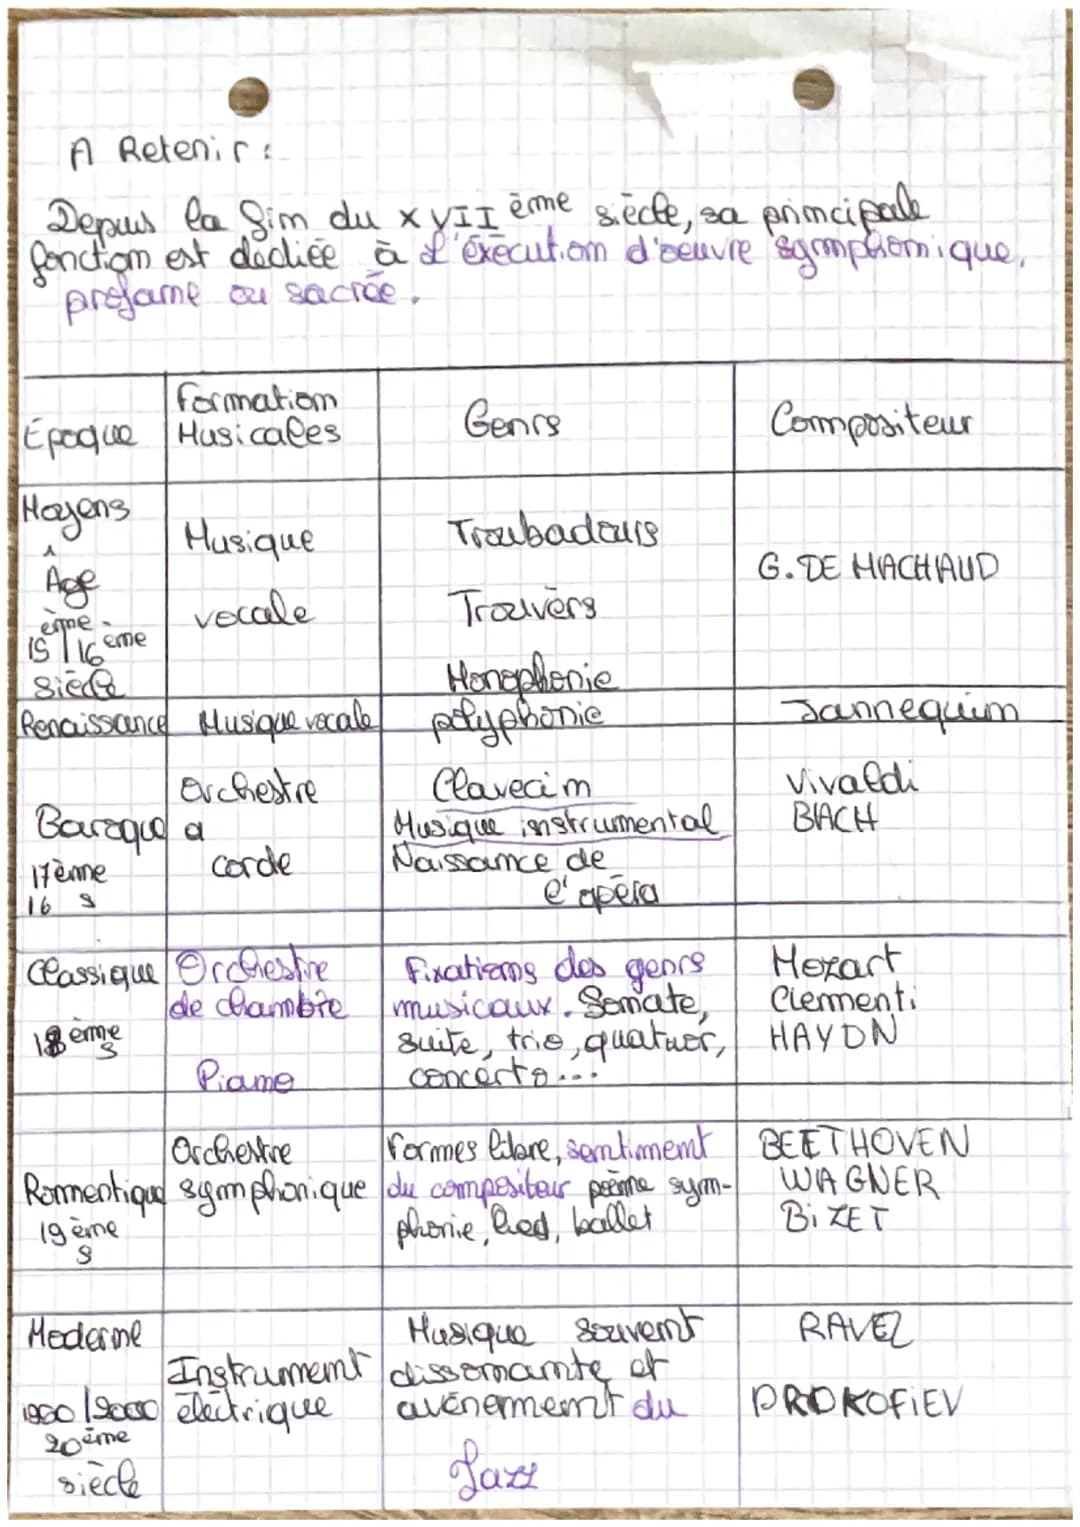 A Retenir :
Depuis la fin du XVII ème siècle, sa principale
fonction est dédiée à l'éxécution d'oeuvre symphonique,
profane ou sacrée.
Époque
Formation
Musicales
Genrs
Compositeur
Moyens
Âge
15 ème / 16 ème
siècle
Musique
vocale
Troubadours
Trouvèrs
Monophonie
G. DE MACHAUD
Renaissance
Musique vocale
polyphonie
Jannequin
Baroque
17ème
16 s
Orchestre
a
corde
Clavecin
Musique instrumental
Naissance de
l'opéra
Vivaldi
BACH
Classique
18ème
s
Orchestre
de chambre
Piano
Fixations des genrs
musicaux. Sonate,
suite, trio, quatuor,
concerto...
Mozart
Clementi
HAYDN
Romentique
19ème
s
Orchestre
symphonique
Formes libre, sentiment
du compositeur poème sym-
phonie, lied, ballet
BEETHOVEN
WAGNER
BiZET
Moderne
1900/2000
20ème
siècle
Instrument
électrique
Musique souvent
dissonante et
avénement du
Jazz
RAVEL
PROKOFiEV